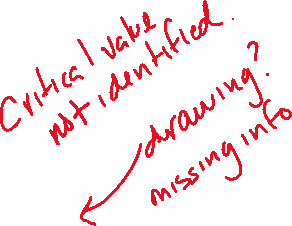 Critical value
not identified.
drawing?
missing info